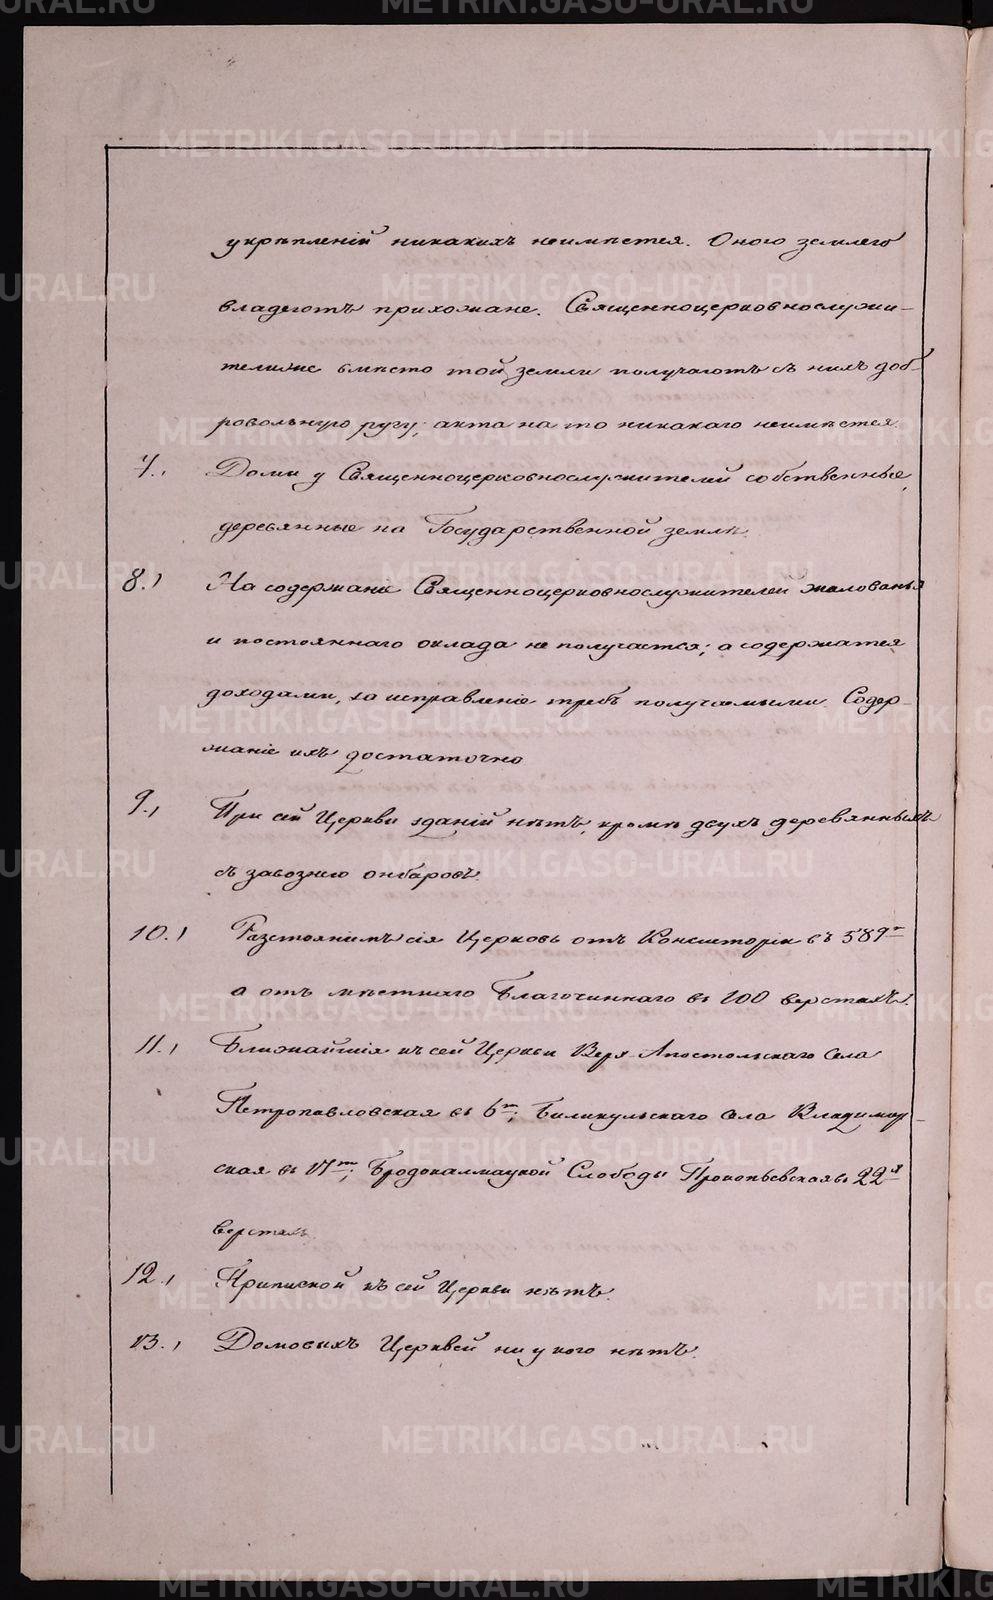 укрѣпленій никакихъ неимѣется. Оною землею
владеютъ прихожане. Священноцерковнослужи-
телиже вмѣсто той земли получаютъ съ нихъ доб-
ровольную ругу; акта на то никакаго неимѣется.
7., Домы у Священноцерковнослужителей собственные,
деревянные на Государственной землѣ.
8., На содержаніе Священноцерковнослужителей жалованья
и постояннаго оклада не получается; а содержатся
доходами, за исправленіе требъ получаемыми. Содер-
жаніе ихъ достаточно
9., При сей Церкви зданій нѣтъ, кромѣ двухъ деревянныхъ
съ завознею онбаровъ.
10., Разстояніемъ сія Церковь отъ Консисторіи въ 589ти
а отъ мѣстнаго Благочиннаго въ 100 верстахъ.
11., Ближайшія къ сей Церкви Верх-Апостольскаго Села
Петропавловская въ 6ти; Биликульскаго Села Владимір-
ская въ 17ти; Бродокалмацкой Слободы Прокопьевская въ 22хъ
верстахъ.
12., Приписной къ сей Церкви нѣтъ.
13., Домовыхъ Церквей ни у кого нѣтъ.
METRIKI.GASO-URAL.RU